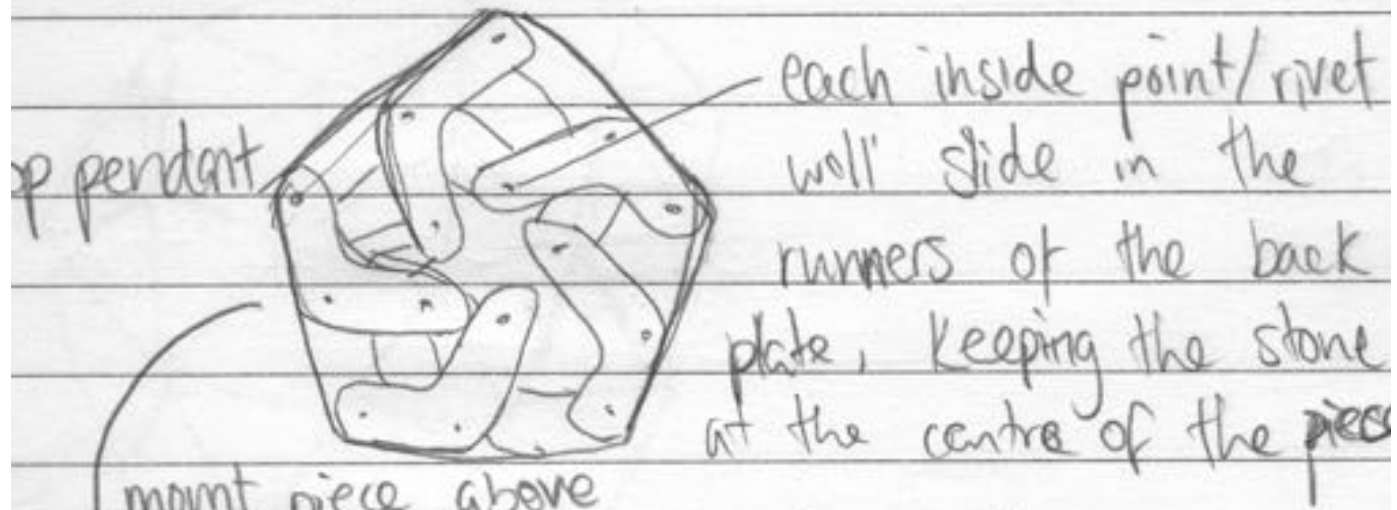 each inside point/rivet
pendant
will slide in the
runners of the back
plate, keeping the stone
at the centre of the piece
mount piece above